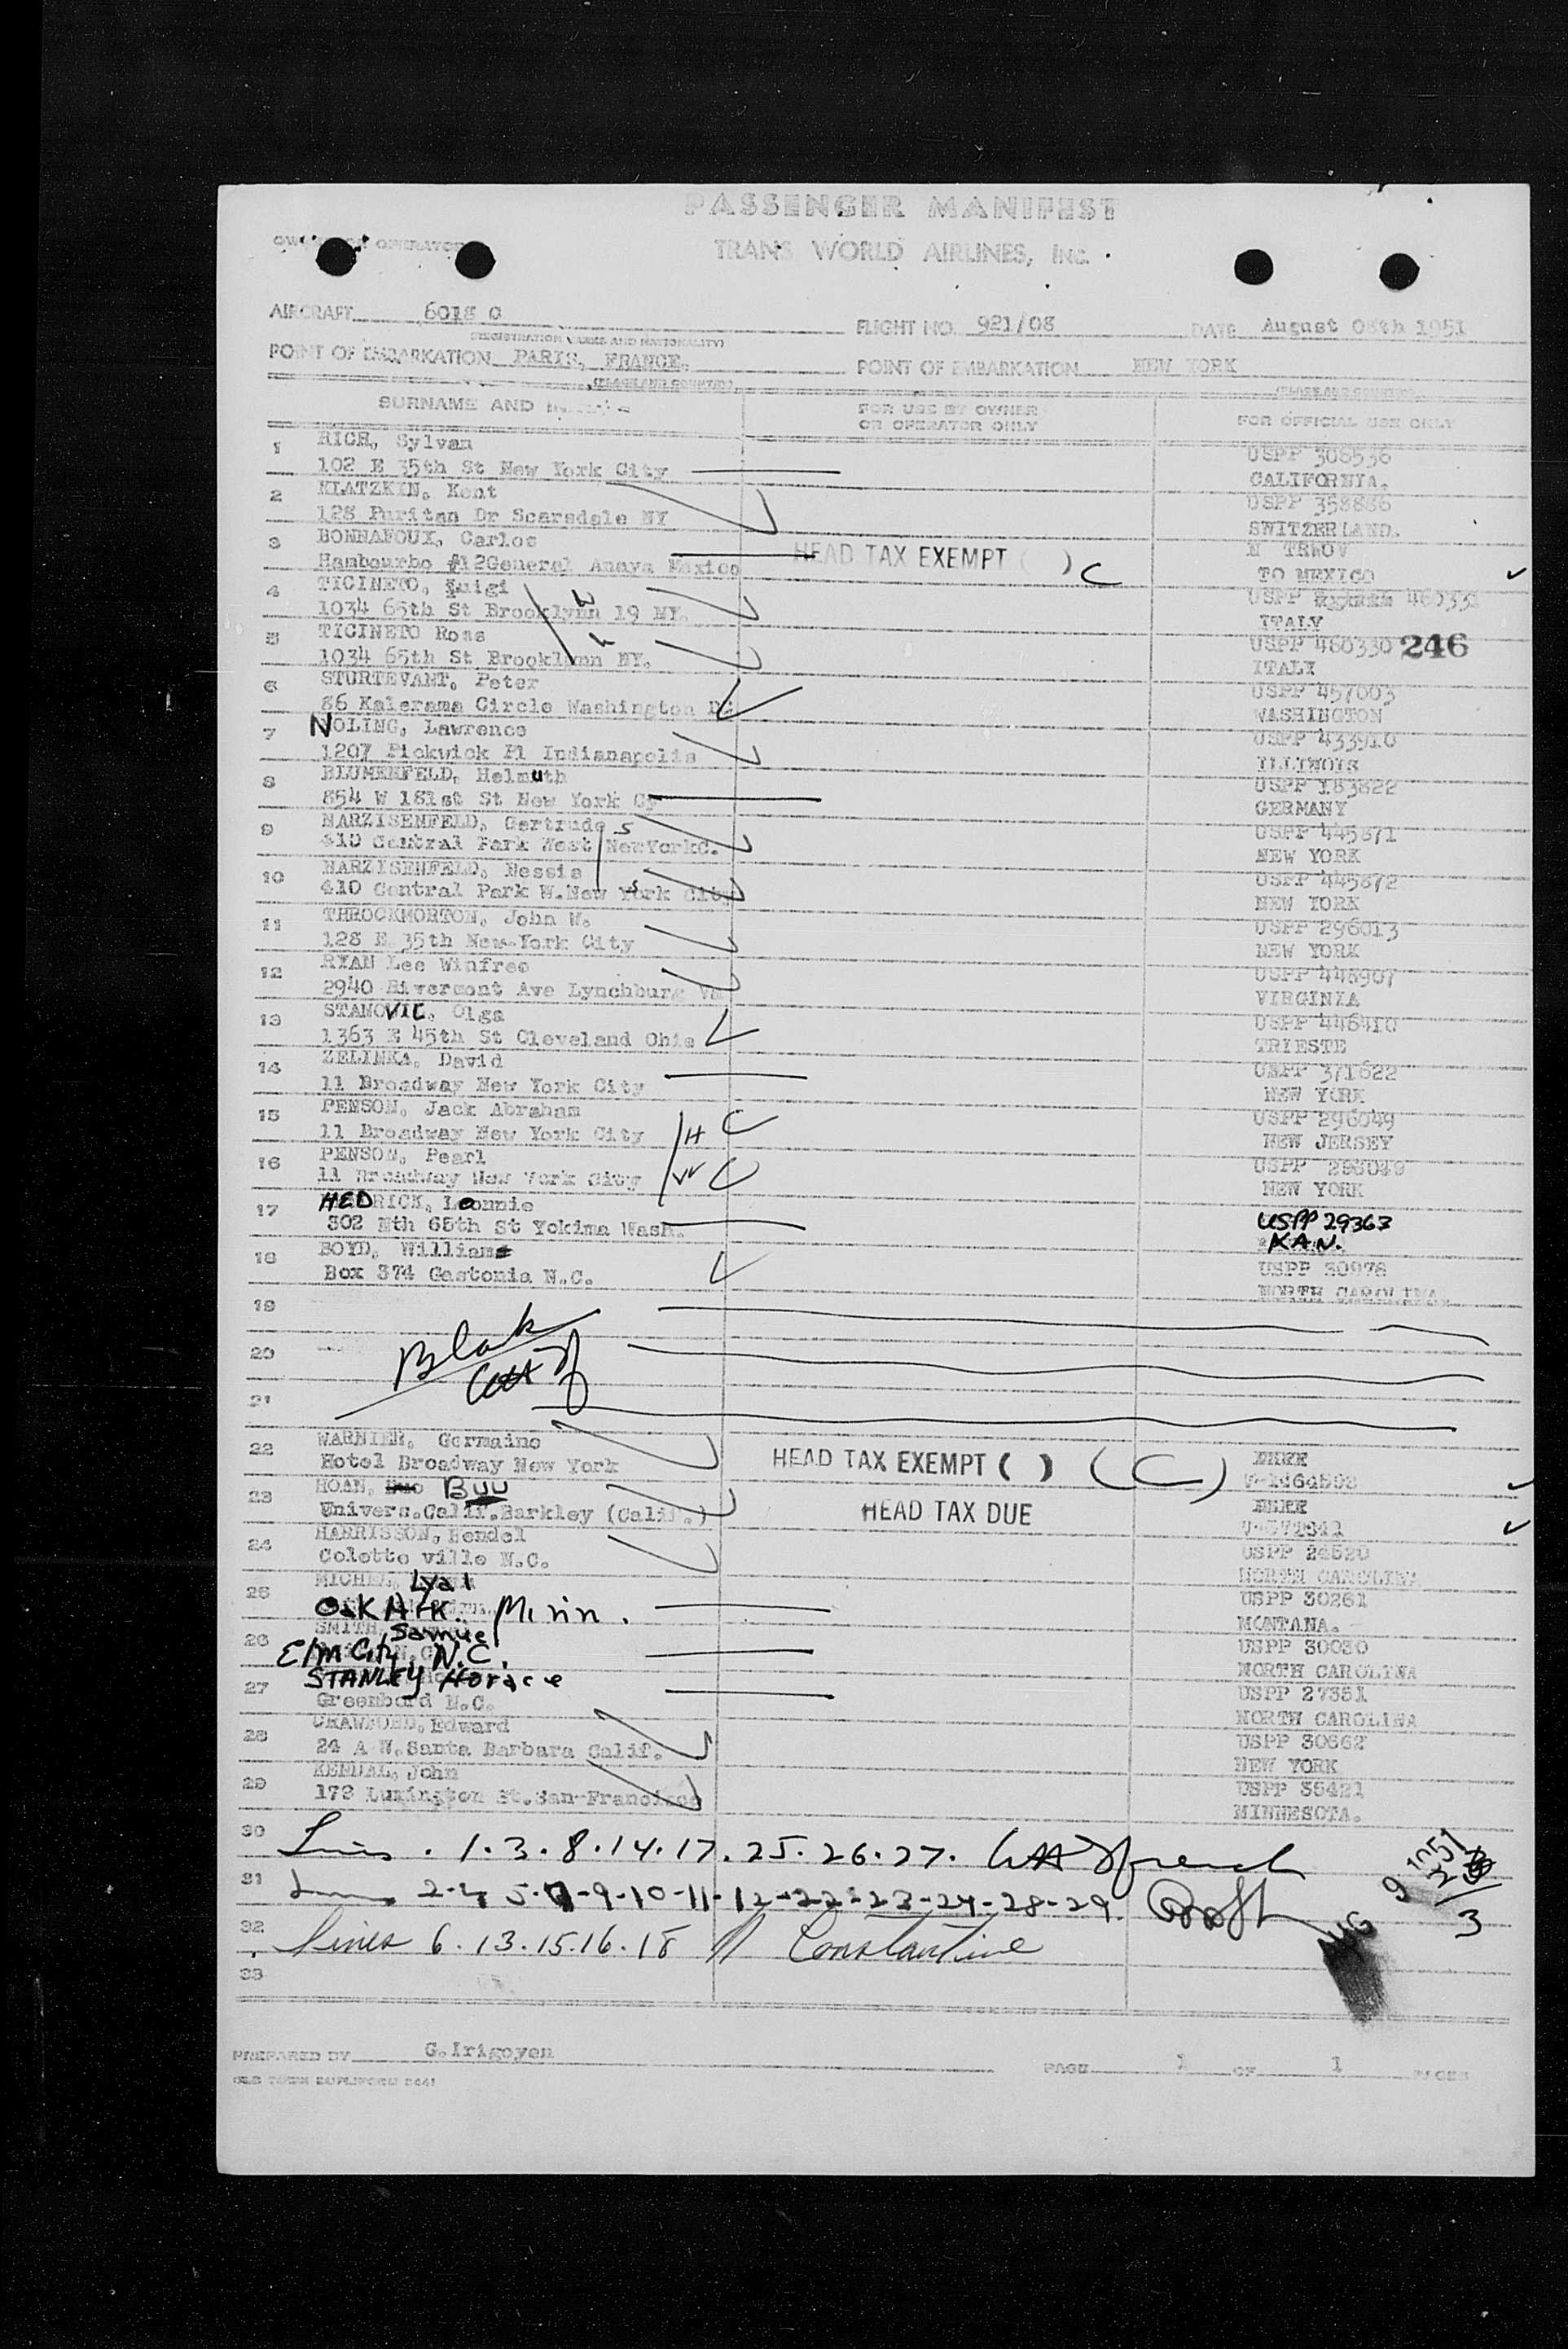 PASSENGER MANIFEST
OPERATOR
TRANS WORLD AIRLINES, INC.
AIRCRAFT 6018 C
FLIGHT NO. 921/08
DATE August 08th 1951
(REGISTRATION MARKS AND NATIONALITY)
POINT OF EMBARKATION PARIS, FRANCE.
POINT OF EMBARKATION NEW YORK
(PLACE AND COUNTRY)
(PLACE AND COUNTRY)
SURNAME AND
FOR USE BY OWNER
OR OPERATOR ONLY
FOR OFFICIAL USE ONLY
1 RICH, Sylvan USPP 308536
102 E 35th St New York City CALIFORNIA.
2 KLATZKIN, Kent USPP 358886
128 Puritan Dr Scarsdale NY SWITZERLAND.
3 BONNAFOUX, Carlos
Hambourbo #12General Anaya Mexico HEAD TAX EXEMPT ( ) C TO MEXICO
4 TICINETO, Luigi USPP 460331
1034 65th St Brooklynn 19 NY. ITALY
5 TICINETO Rosa USPP 460330 246
1034 65th St Brooklynn NY. ITALY
6 STURTEVANT, Peter USPP 457003
86 Kalerama Circle Washington DC WASHINGTON
7 NOLING, Lawrence USPP 433910
1207 Pickwick Pl Indianapolis ILLINOIS
8 BLUMENFELD, Helmuth USPP 183822
854 W 181st St New York Cy GERMANY
9 MARZISENFELD, Gertrude S USPP 445871
410 Central Park West NewYorkC. NEW YORK
10 MARZISENFELD, Bessie USPP 445872
410 Central Park W.New York City S NEW YORK
11 THROCKMORTON, John W. USPP 296013
128 E 35th New-York City NEW YORK
12 RYAN Lee Winfree USPP 448907
2940 Rivermont Ave Lynchburg Va VIRGINIA
13 STANOVIC, Olga USPP 446410
1363 E 45th St Cleveland Ohio TRIESTE
14 ZELINKA, David USPP 371622
11 Broadway New York City NEW YORK
15 PENSON, Jack Abraham USPP 296049
11 Broadway New York City H C NEW JERSEY
16 PENSON, Pearl USPP 296049
11 Broadway New York City W C NEW YORK
17 HEDRICK, Leonnie USPP 29363
302 Nth 65th St Yokima Wash. KAN.
18 BOYD, William USPP 30978
Box 374 Gastonia N.C. NORTH CAROLINA
19
20 Blank
21
22 WARNIER, Germaine
Hotel Broadway New York HEAD TAX EXEMPT ( ) (C) V-1464592
23 HOAN, Duc Buu
Univers.Calif.Barkley (Calif.) HEAD TAX DUE
24 HARRISSON, Hendel USPP 24520
Colette ville N.C. NORTH CAROLINA
25 MICHEL, Lyal USPP 30261
Minn. MONTANA.
26 SMITH, Samuel USPP 30030
Elm City, N.C. NORTH CAROLINA
27 STANLEY Horace USPP 27351
Greenbord N.C. NORTH CAROLINA
28 CRAWFORD, Edward USPP 30662
24 A N.Santa Barbara Calif. NEW YORK
29 KENDAL, John USPP 35421
172 Lunington St.San-Francisco MINNESOTA.
30 Lines . 1.3.8.14.17.25.26.27.
31 2-4 5-7-9-10-11-12-22-23-24-28-29.
32 Lines 6.13.15.16.18 Constantine
33
9 1951
3
PREPARED BY G.Irigoyen
PAGE 1 OF 1 PAGES